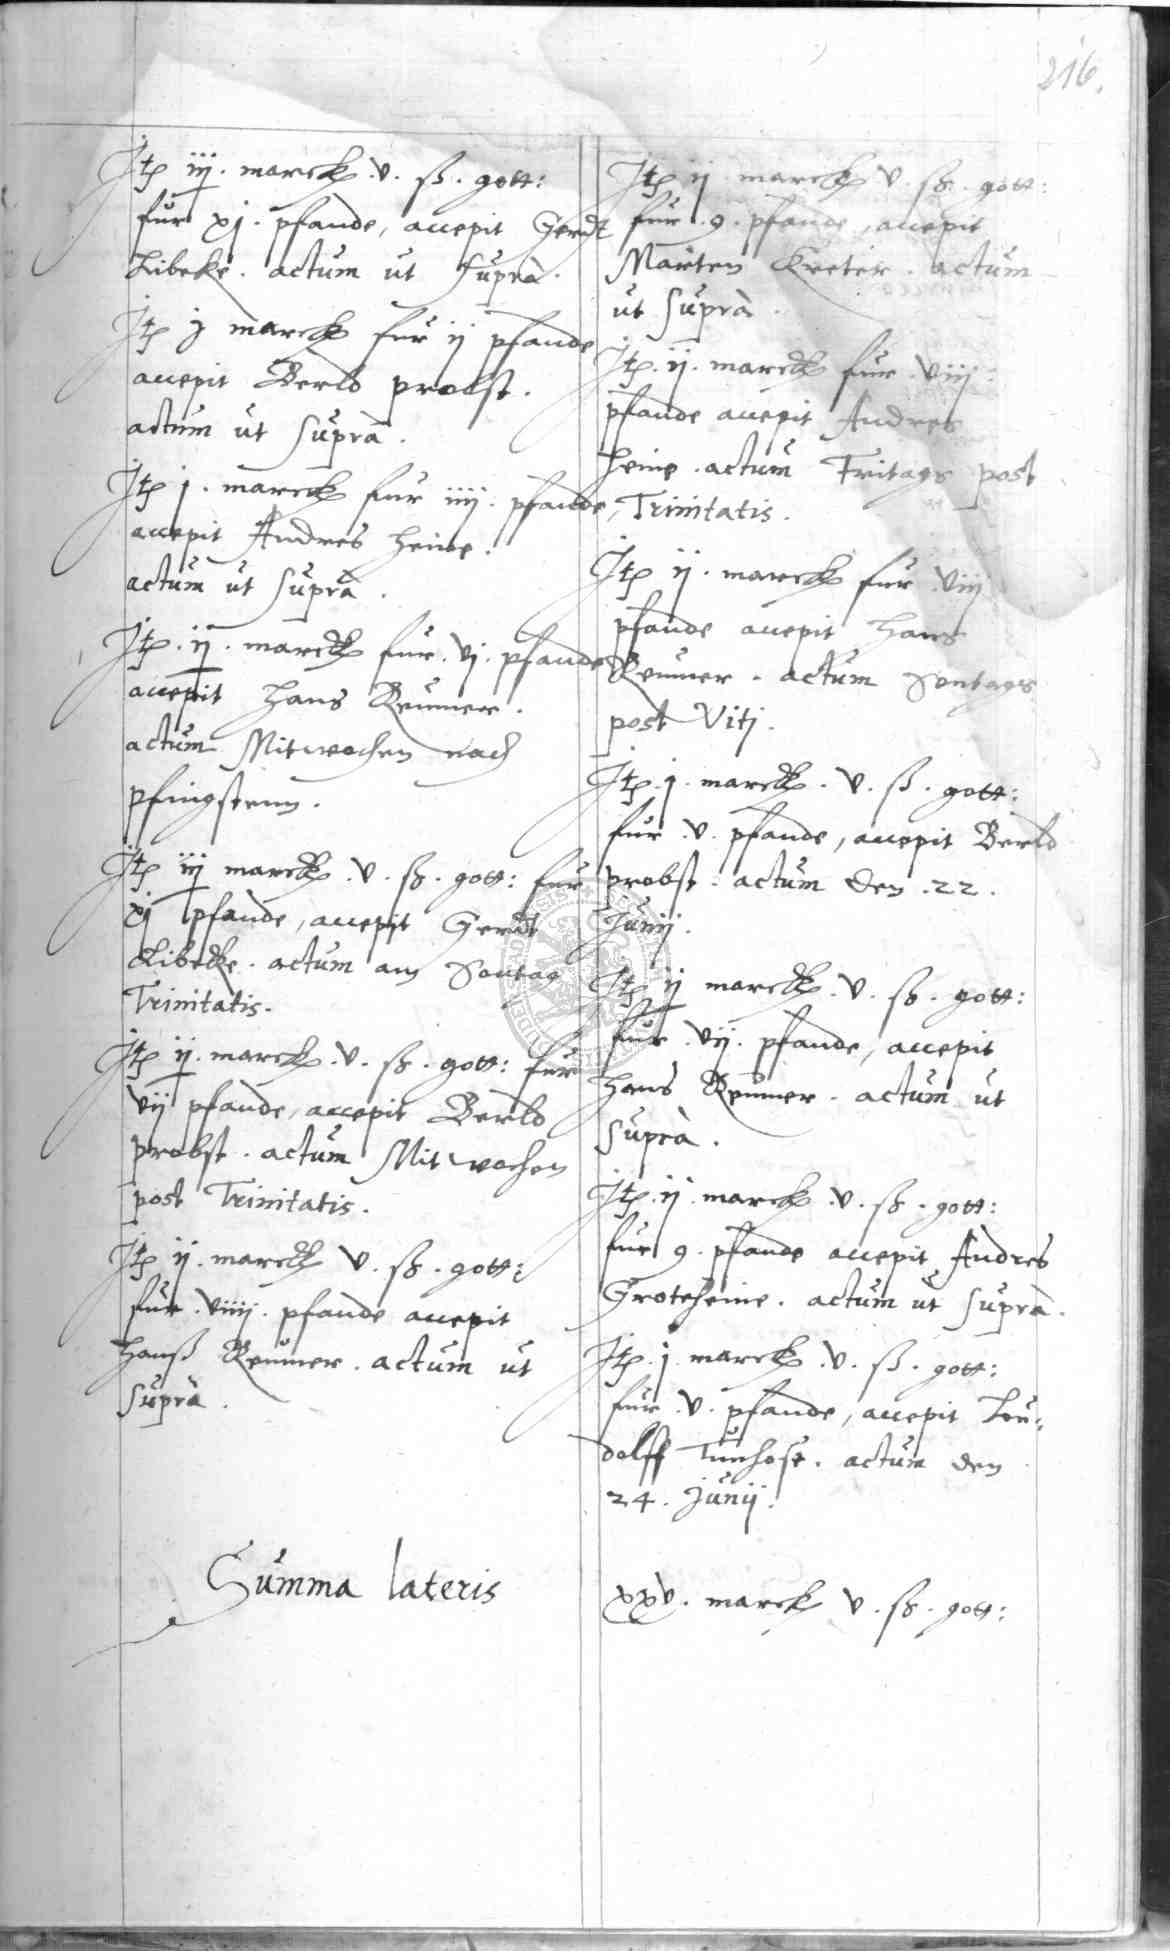 216.
Itp iij. marck. v. ß. gott:
fur xj. pfande, accepit Gerdt
Libeke. actum ut suprà.
Itp j marck fur ij pfande
accepit Berld probst.
actum ut suprà.
Itp j. marck fur iiij. pfande,
accepit Andres Heine.
actum ut suprà.
Itp. ij. marck fur. vj. pfande
accepit Hans Remmer.
actum Mitwochen nach
pfingstenn.
Itp iij marck. v. ß. gott: fur
xj pfande, accepit Gerdt
Libeke. actum am Sontag
Trinitatis.
Itp ij. marck. v. ß. gott: fur
vij pfande, accepit Berld
probst. actum Mitwochen
post Trinitatis.
Itp ij. marck v. ß. gott:
fur. viiij. pfande accepit
Hanß Remmer. actum ut
suprà.
Summa lateris
Itp ij marck v. ß. gott:
fur. 9. pfande, accepit
Marten Kreter. actum
ut suprà.
Itp. ij. marck fur. viij.
pfande accepit Andres
Heine. actum Fritags post
Trinitatis.
Itp ij. marck fur. viij
pfande accepit Hans
Remmer. actum Sontags
post Viti.
Itp. j. marck. v. ß. gott:
fur. v. pfande, accepit Berld
probst. actum den. 22.
Junij.
Itp ij marck. v. ß. gott:
fur. vij. pfande, accepit
Hans Remmer. actum ut
suprà.
Itp. ij. marck. v. ß. gott:
fur 9. pfande accepit Andres
Groteheine. actum ut suprà.
Itp. j marck. v. ß. gott:
fur. v. pfande, accepit Lou-
dolff Tunhose. actum den
24. Junij.
xxv. marck v. ß. gott: